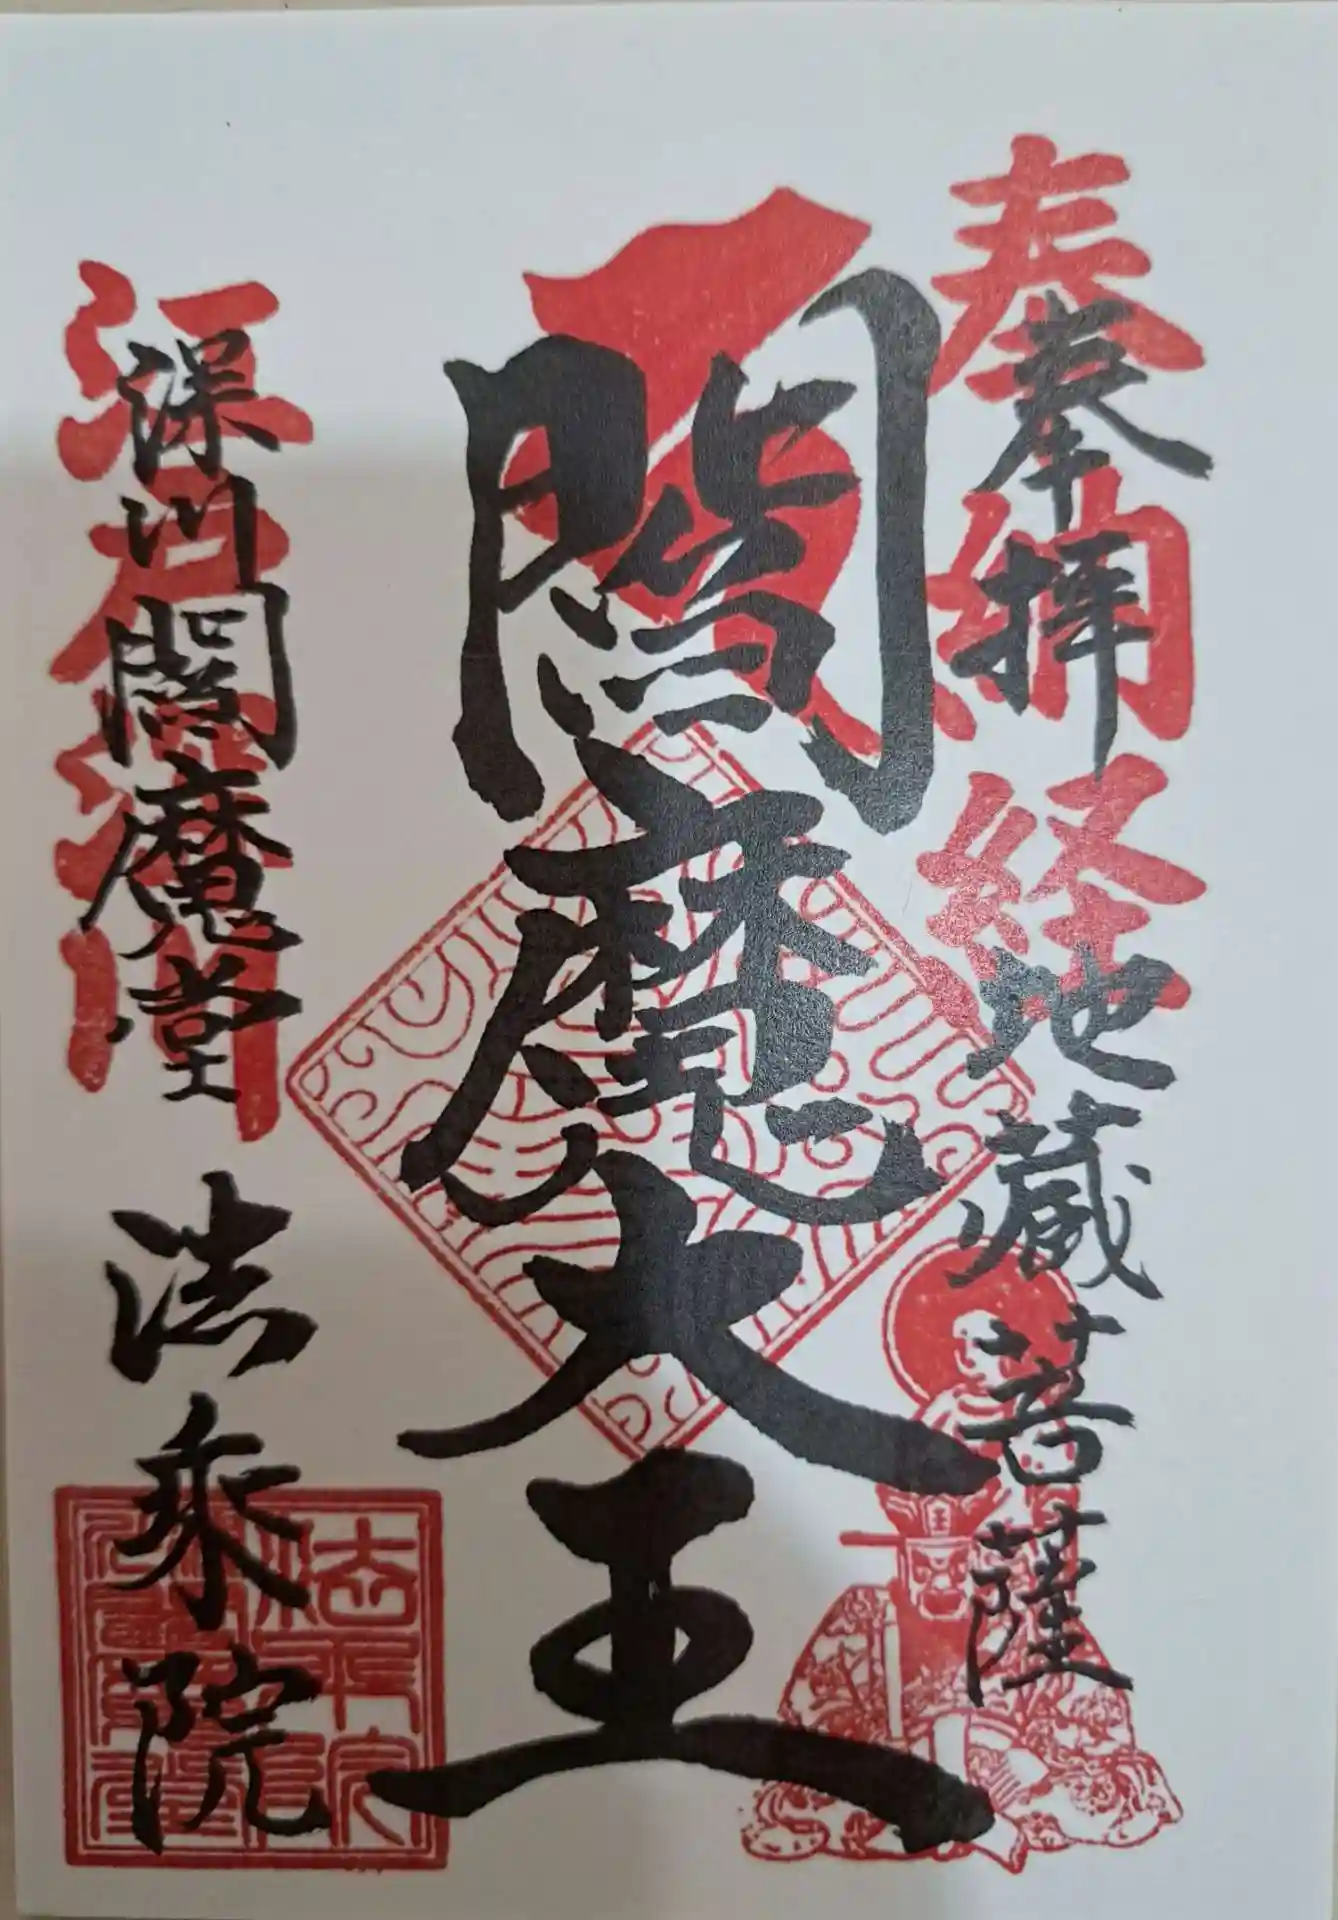 奉納経
奉拝
地蔵菩薩
閻魔大王
江戸深川
深川閻魔堂
法乗院
王